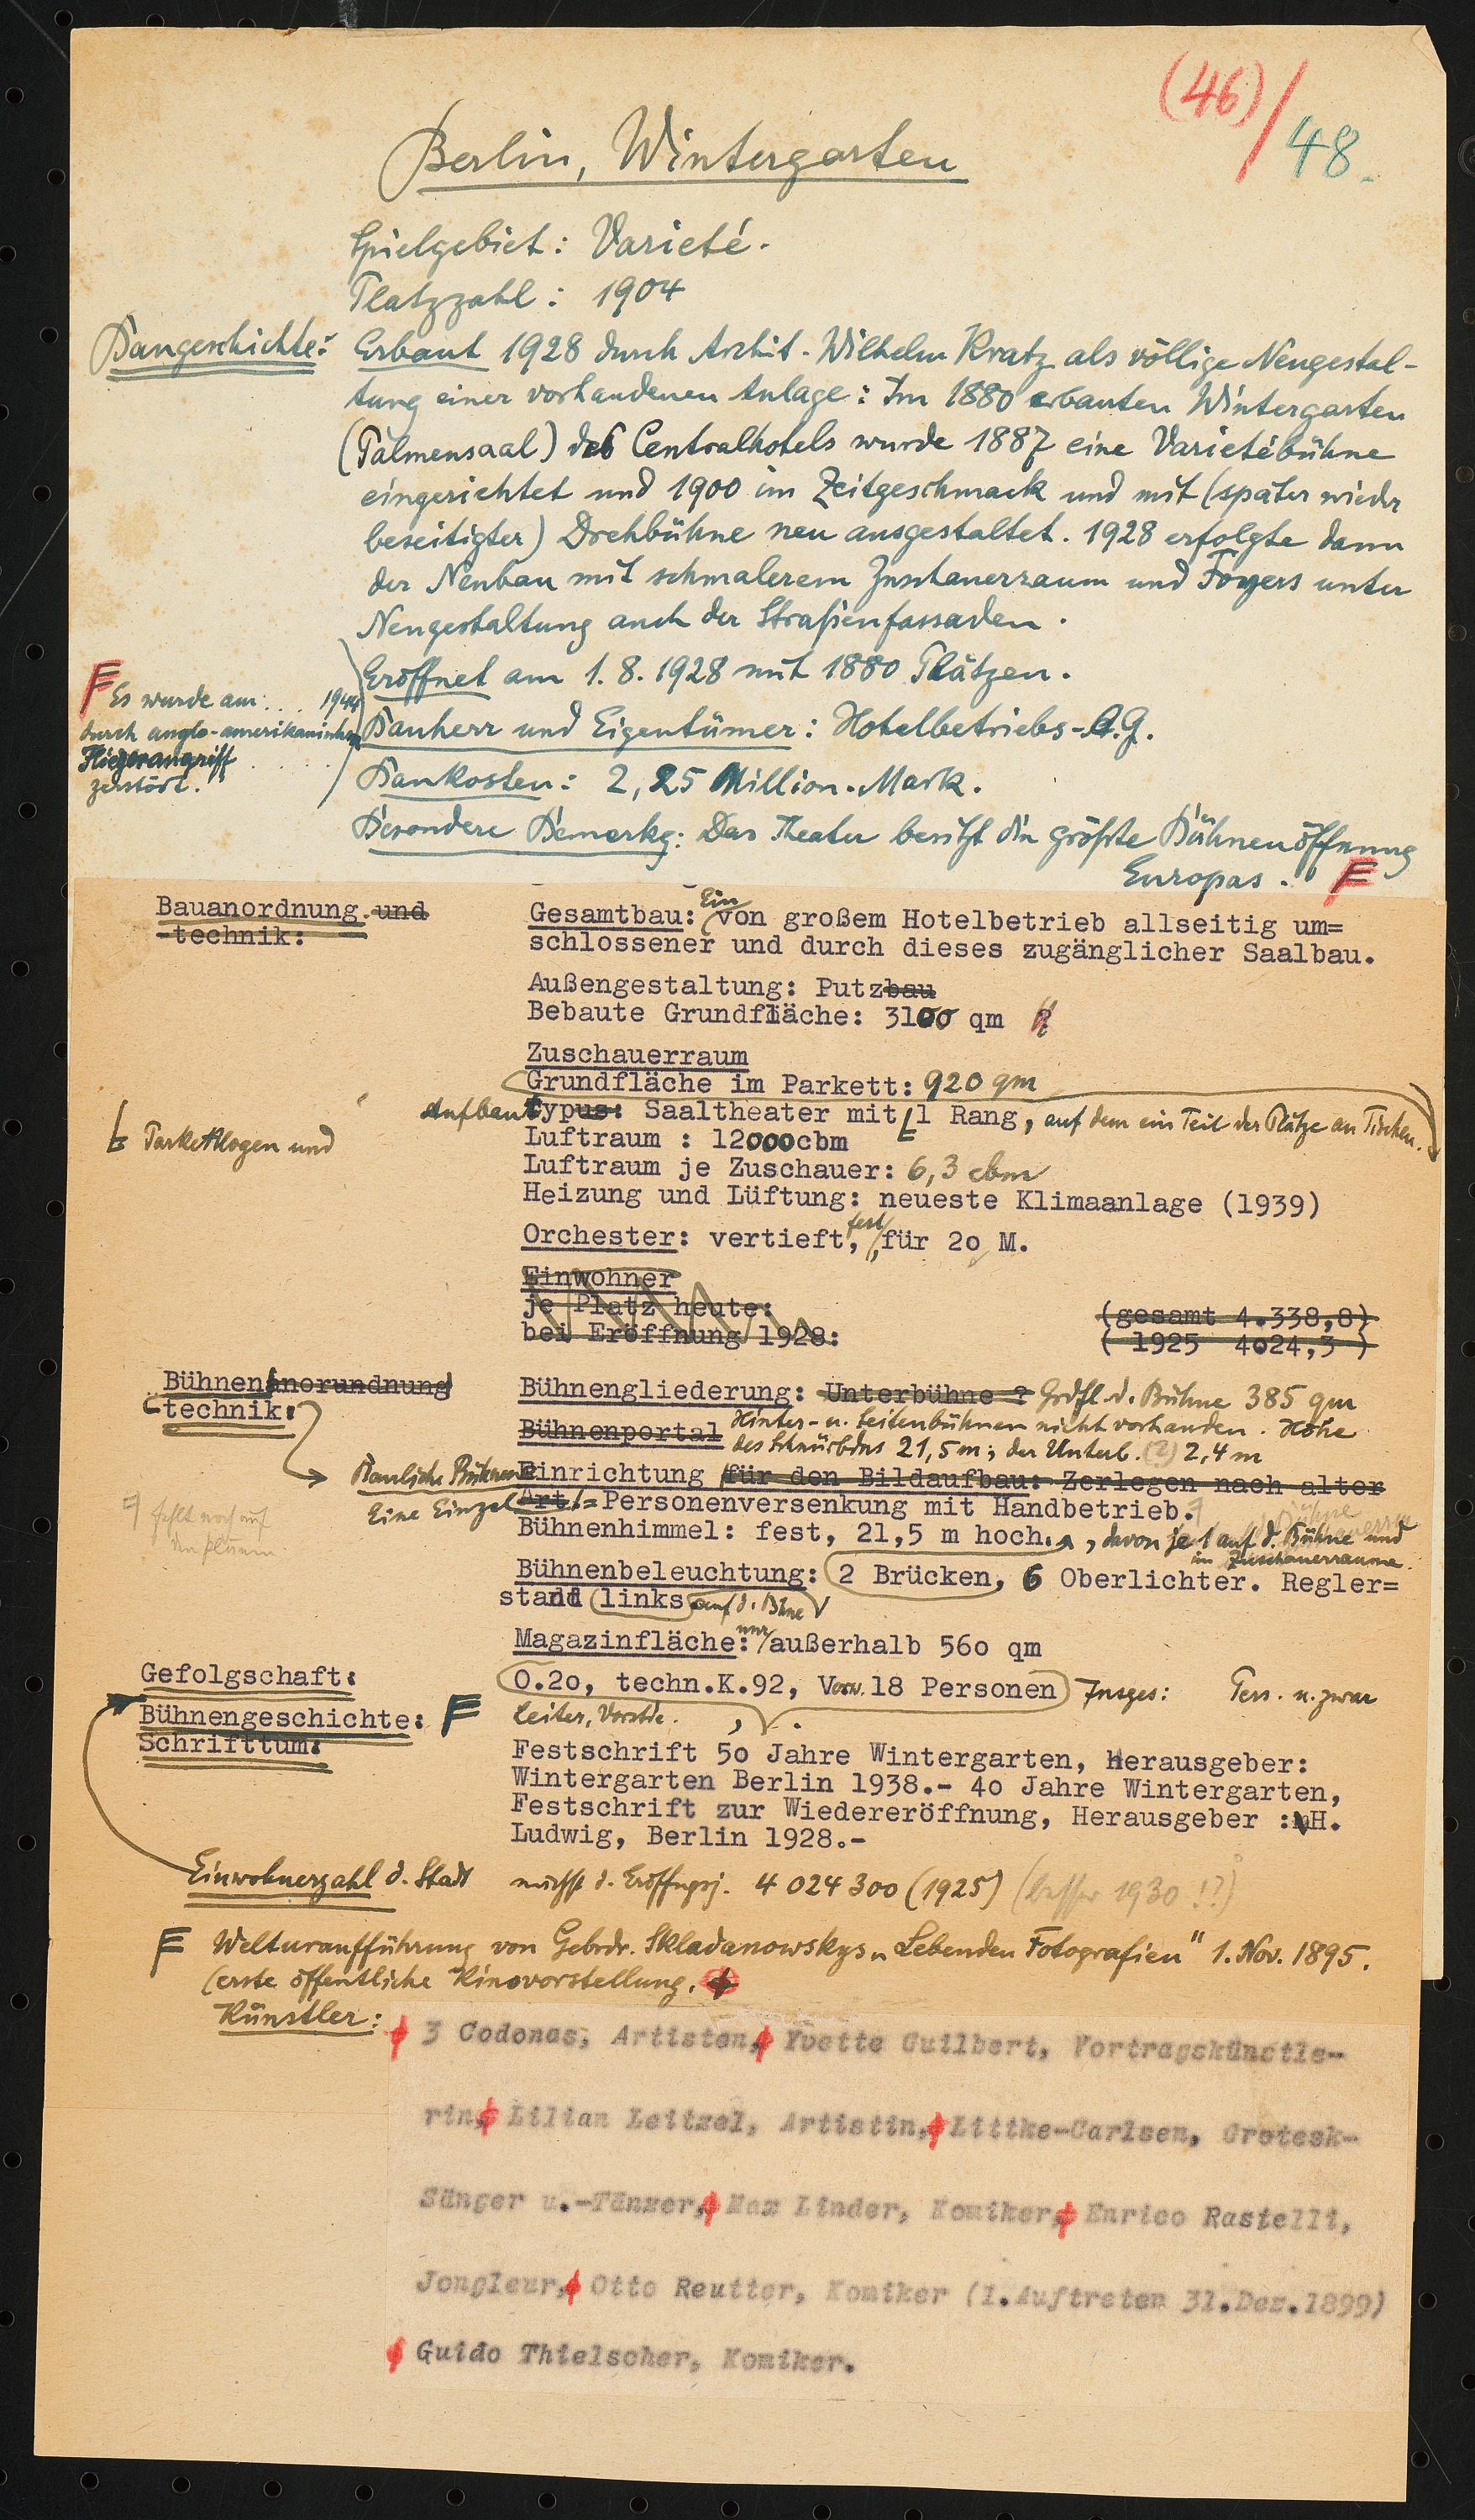 (46)/48.
Berlin, Wintergarten
Spielgebiet: Varieté.
Platzzahl: 1904
Baugeschichte: Erbaut 1928 durch Archit. Wilhelm Kratz als völlige Neugestal-
tung einer vorhandenen Anlage: Im 1880 erbauten Wintergarten
(Palmensaal) des Centralhotels wurde 1887 eine Varietébühne
eingerichtet und 1900 im Zeitgeschmack und mit (später wieder
beseitigter) Drehbühne neu ausgestaltet. 1928 erfolgte dann
der Neubau mit schmalerem Zuschauerraum und Foyers unter
Neugestaltung auch der Straßenfassaden.
Eröffnet am 1.8.1928 mit 1880 Plätzen.
F Es wurde am . . . . 1944
durch anglo-amerikanischen
Fliegerangriff . . . . .
zerstört.
Bauherr und Eigentümer: Hotelbetriebs-A.G.
Baukosten: 2,25 Million. Mark.
Besondere Bemerkg: Das Theater besitzt die größte Bühnenöffnung
Europas. F
Bauanordnung und
-technik:
Gesamtbau: Ein von großem Hotelbetrieb allseitig um=
schlossener und durch dieses zugänglicher Saalbau.
Außengestaltung: Putzbau
Bebaute Grundfläche: 3100 qm
Zuschauerraum
Grundfläche im Parkett: 920 qm
Aufbau typus: Saaltheater mit 1 Rang, auf dem ein Teil der Plätze an Tischen.
Parkettlogen und
Luftraum : 12000cbm
Luftraum je Zuschauer: 6,3 cbm
Heizung und Lüftung: neueste Klimaanlage (1939)
Orchester: vertieft, fest, für 2o M.
Einwohner
je Platz heute: (gesamt 4.338,8)
bei Eröffnung 1928: ( 1925 4o24,3 )
Bühnenanorundnung
technik:
Bühnengliederung: Unterbühne ? Grdfl. d. Bühne 385 qm
Bühnenportal Hinter- u. Seitenbühnen nicht vorhanden. Höhe
des Schnürbdns 21,5 m; der Unterb. (?) 2,4 m
Bauliche Bühnen Einrichtung für den Bildaufbau: Zerlegen nach alter
Art.
Eine Einzel = Personenversenkung mit Handbetrieb.
fehlt noch auf
den Plänen
Bühnenhimmel: fest, 21,5 m hoch. , davon je 1 auf d. Bühne und
im Zuschauerraume.
Bühnenbeleuchtung: 2 Brücken, 6 Oberlichter. Regler=
stand links auf d. Bühne
Magazinfläche: nur außerhalb 56o qm
Gefolgschaft: O.2o, techn.K.92, Verw. 18 Personen Insges: Pers. u. zwar
Bühnengeschichte: F Leiter, Vorstde.
Schrifttum:
Festschrift 5o Jahre Wintergarten, Herausgeber:
Wintergarten Berlin 1938.- 4o Jahre Wintergarten,
Festschrift zur Wiedereröffnung, Herausgeber : H.
Ludwig, Berlin 1928.-
Einwohnerzahl d. Stadt nächst d. Eröffngsj. 4 024 300 (1925) (besser 1930 !?)
F Welturaufführung von Gebrdr. Skladanowskys „Lebenden Fotografien" 1. Nov. 1895.
(erste öffentliche Kinovorstellung.
Künstler:
3 Codonas, Artisten, Yvette Guilbert, Vortragskünstle-
rin, Lilian Leitzel, Artistin, Littke-Carlsen, Grotesk-
Sänger u.-Tänzer, Max Linder, Komiker, Enrico Rastelli,
Jongleur, Otto Reutter, Komiker (1.Auftreten 31.Dez.1899)
Guido Thielscher, Komiker.